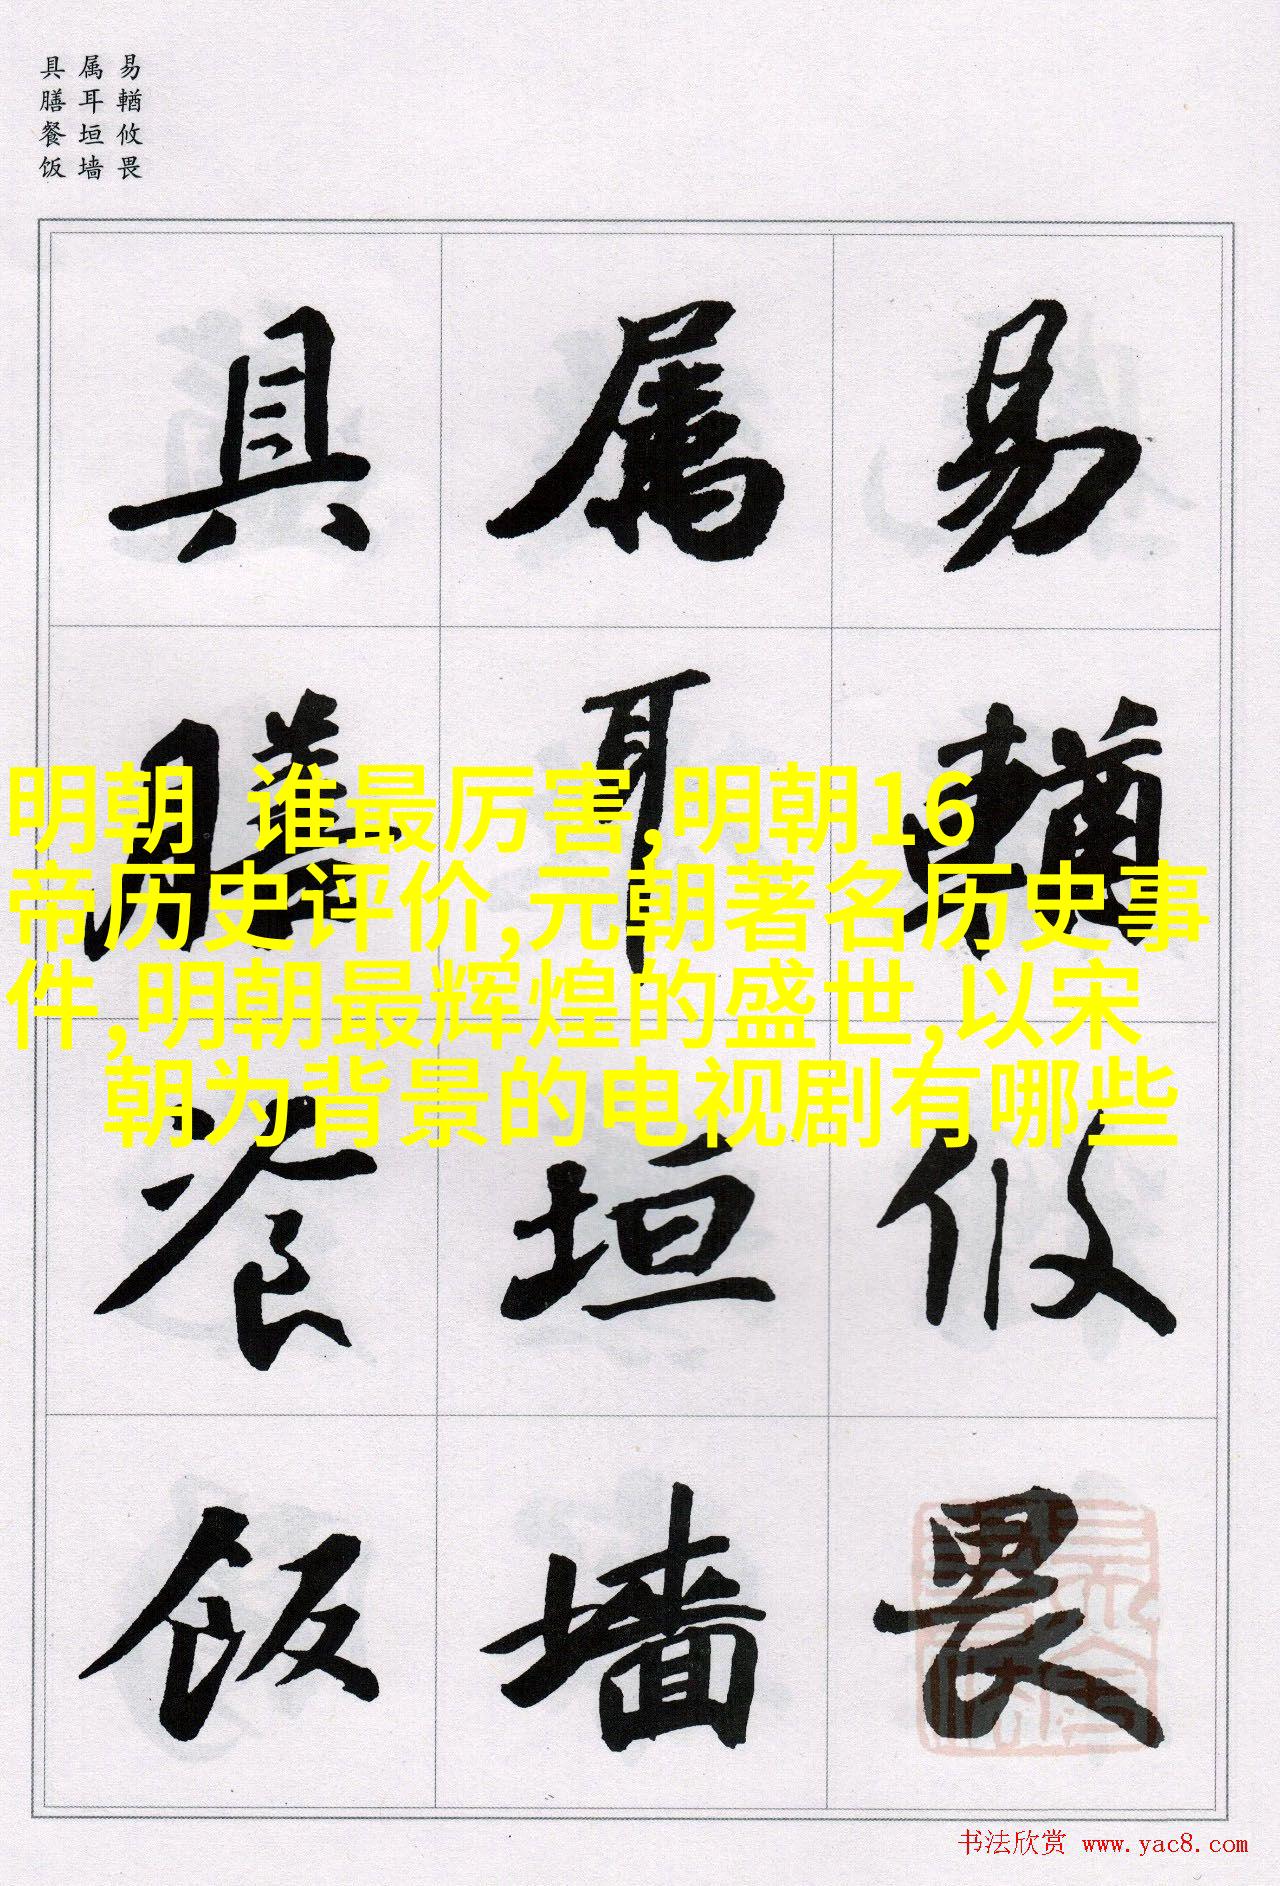 易輶攸畏
属耳垣墙
具膳餐饭
易輶攸畏
属耳垣墙
具膳餐饭
明朝 谁最厉害,明朝16
帝历史评价,元朝著名历史事
件,明朝最辉煌的盛世,以宋
朝为背景的电视剧有哪些
书法欣赏 www.yac8.com